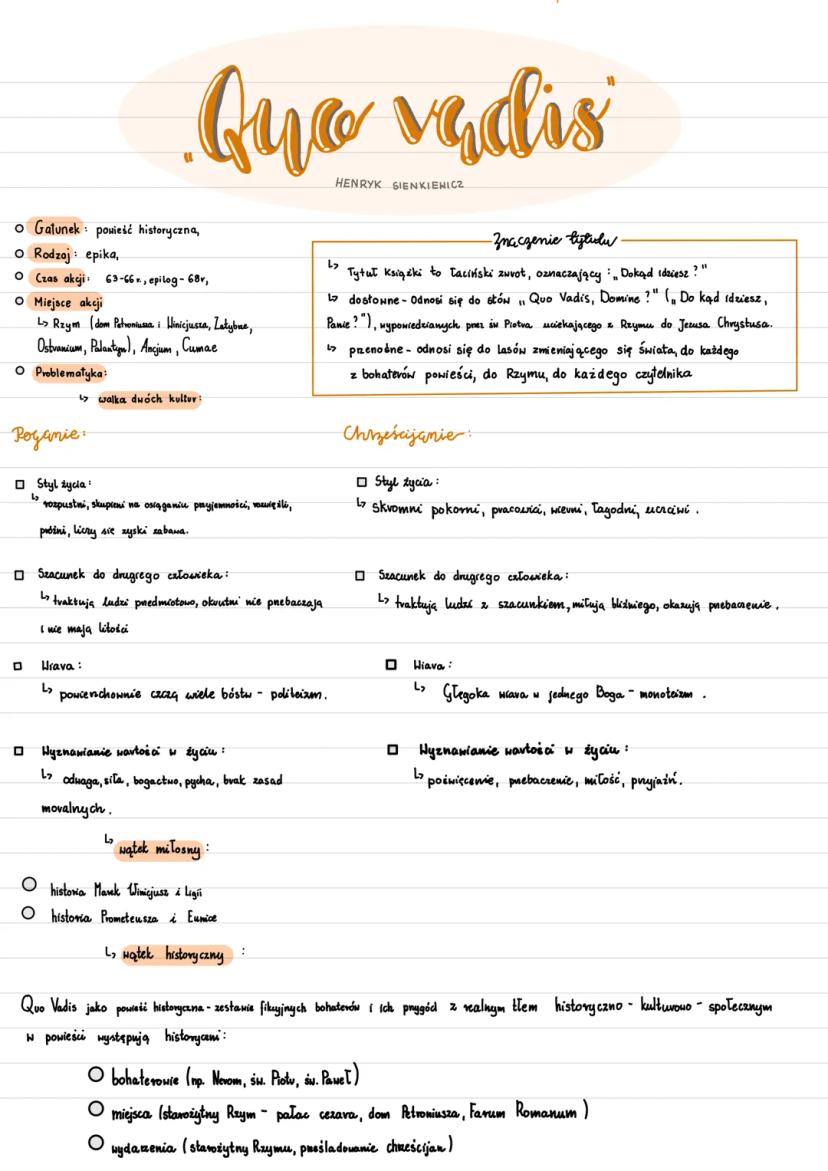 „Quo vadis"
HENRYK SIENKIEWICZ
Gatunek: powieść historyczna,
Rodzaj: epika,
Czas akcji: 63-66r., epilog - 68r,
Miejsce akcji
↳ Rzym (dom Petroniusza i Winicjusza, Zatybrze,
Ostranium, Palantyn), Ancjum, Cumae
Problematyka:
↳ walka dwóch kultur:
Znaczenie tytułu
↳ Tytuł Książki to Łaciński zwrot, oznaczający: „Dokąd idziesz?"
↳ dosłowne - Odnosi się do słów „Quo Vadis, Domine?" („Do kąd idziesz,
Panie?"), wypowiedzianych przez św Piotra uciekającego z Rzymu do Jezusa Chrystusa.
↳ przenośne - odnosi się do Lasów zmieniającego się świata, do każdego
z bohaterów powieści, do Rzymu, do każdego czytelnika
Poganie:
Styl życia:
↳ rozpustni, skupieni na osiąganiu przyjemności, rozwięźli,
próżni, liczy się zyski zabawa.
Szacunek do drugiego człowieka:
↳ traktują ludzi przedmiotowo, okrutni nie przebaczają
i nie mają litości
Wiara:
↳ powierzchownie czczą wiele bóstw - politeizm.
Wyznawianie wartości w życiu:
↳ odwaga, siła, bogactwo, pycha, brak zasad
moralnych.
Chrześcijanie:
Styl życia:
↳ Skromni pokorni, pracowici, wierni, Łagodni, uczciwi.
Szacunek do drugiego człowieka:
↳ traktują ludzi z szacunkiem, miłują bliźniego, okazują przebaczenie.
Wiara:
↳ Głęgoka wiara w jednego Boga - monoteizm.
Wyznawianie wartości w życiu:
↳ poświęcenie, przebaczenie, miłość, przyjaźń.
↳ wątek miłosny:
historia Marek Winicjusz i Ligii
historia Prometeusza i Eunice
↳ wątek historyczny:
Quo Vadis jako powieść historyczna - zestawie fikcyjnych bohaterów i ich przygód z realnym tłem historyczno - kulturowo - społecznym
w powieści występują historyczni:
bohaterowie (np. Neron, św. Piotr, św. Paweł)
miejsca (starożytny Rzym - pałac cezara, dom Petroniusza, Forum Romanum)
wydarzenia (starożytny Rzymu, prześladowanie chrześcijan)